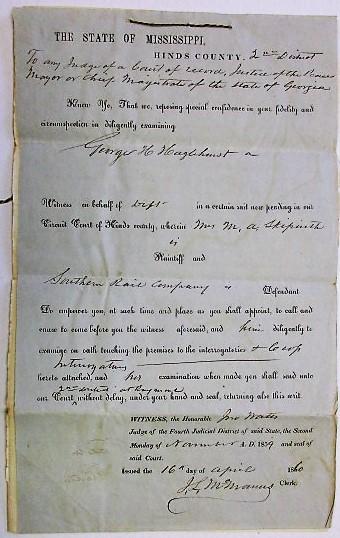 THE STATE OF MISSISSIPPI,
HINDS COUNTY. 2nd District
To any Judge of a Court of record, Justice of the Peace
Mayor or Chief Magistrate of the state of Georgia
Know Ye, That we, reposing special confidence in your fidelity and
circumspection in diligently examining
George H Hazlehurst a
Witness on behalf of Deft in a certain suit now pending in our
Circuit Court of Hinds county, wherein Mrs M. A. Skipwith
is
Plaintiff and
Southern Rail Company is Defendant
Do empower you, at such time and place as you shall appoint, to call and
cause to come before you the witness aforesaid, and him diligently to
examine on oath touching the premises to the interrogatories &
Interrogatories
hereto attached, and his examination when made you shall send unto
2nd District at Raymond
our Court, without delay, under your hand and seal, returning also this writ.
WITNESS, the Honorable Jno Watts
Judge of the Fourth Judicial District of said State, the Second
Monday of November A. D. 1859 and seal of
said Court.
Issued the 16th day of April 1860
Clerk.